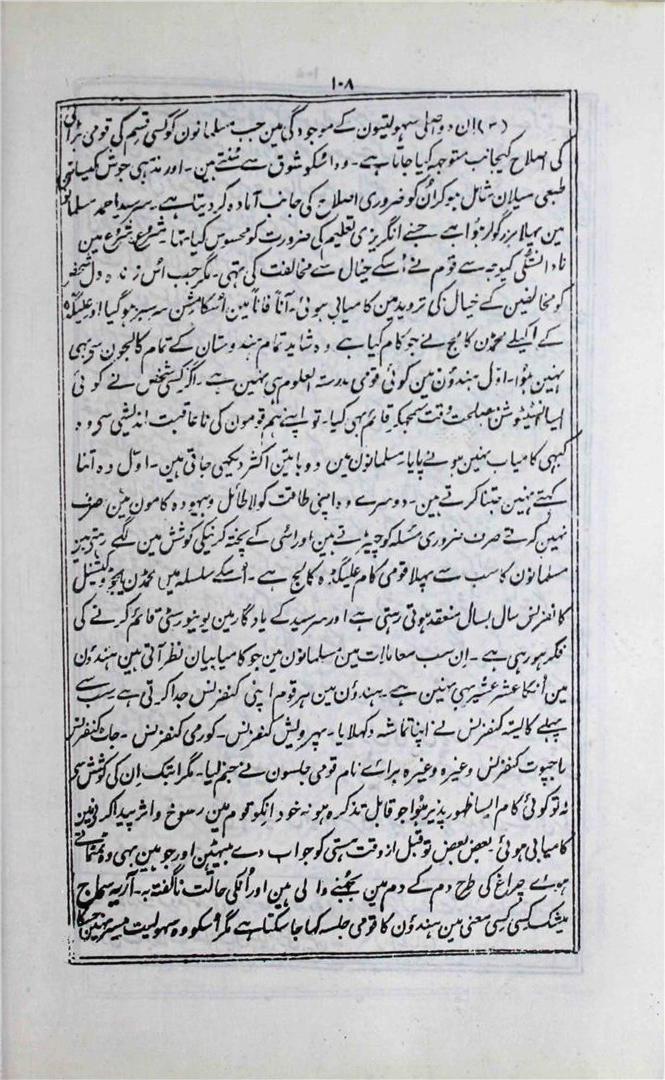 ۱۰۸
(۳) اِن دو اصلی سہولیتیون کے موجودگی مین جب مسلمانون کو کسی قسم کی قومی بُرائی
کی اصلاح کیجانب متوجہ کیا جاتا ہے۔ وہ اسکو شوق سے سُنتے ہین۔ اور مذہبی جوش کیساتھ
طبعی میلان شامل ہوکر اُن کو ضروری اصلاح کی جانب آمادہ کر دیتا ہے۔ سرسید احمد مسلمانون
مین پہلا بزرگوار ہُوا ہے جسنے انگریزی تعلیم کی ضرورت کو محسوس کیا تہا شروع شروع مین
نادانستگی کیوجہ سے قوم نے اُسکے خیال سے مخالفت کی تہی۔ مگر جب اُس زندہ دل شخص
کو مخالفین کے خیال کی تردید مین کامیابی ہوئی۔ آناً فاناً مین اُسکا مشن سرسبز ہو گیا! اور علیگڈہ
کے اکیلے محمڈن کالج نے جو کام کیا ہے وہ شاید تمام ہندوستان کے تمام کالجون سے بہی
نہین ہُوا۔ اوّل ہندؤن مین کوئی قومی مدرستہ العلوم ہی نہین ہے۔ اگر کسی شخص نے کوئی
ایسا انسٹیٹوشن مصلحت وقت سمجہکر قائم بہی کیا۔ تو اپنے ہم قومون کی ناعاقبت اندیشی سے وہ
کبہی کامیاب نہین ہونے پایا۔ مسلمانون مین دو باتین اکثر دیکہی جاتی ہین۔ اوّل وہ اتنا
کہتے نہین جتنا کرتے ہین۔ دوسرے وہ اپنی طاقت کو لاطائل وبیہودہ کامون مین صرف
نہین کرتے صرف ضروری مسئلہ کو چہیڑتے ہین اور اسی کے پختہ کرنیکی کوشش مین لگے رہتے ہین
مسلمانون کا سب سے پہلا قومی کام علیگڈہ کالج ہے۔ اُسکے سلسلہ مین محمڈن ایجوکیشنل
کانفرنس سال بسال منعقد ہوتی رہتی ہے اور سرسید کے یادگار مین یونیورسٹی قائم کرنے کی
فکر ہو رہی ہے۔ اِن سب معاملات مین مسلمانون مین جو کامیابیان نظر آتی ہین ہندؤن
مین اُنکا عشر عشیر بہی نہین ہے۔ ہندؤن مین ہر قوم اپنی کنفرنس جدا کرتی ہے سب سے
پہلے کالیتہ کنفرنس نے اپنا تماشہ دکہلایا۔ پہر ویش کنفرنس۔ کورمی کنفرنس۔ جاٹ کنفرنس
راجپوت کنفرنس وغیرہ وغیرہ برائے نام قومی جلسون نے جنم لیا۔ مگر ابتک اِن کی کوشش سے
نہ تو کوئی کام ایسا ظہور پذیر ہُوا جو قابل تذکرہ ہو نہ خود انکو قوم مین رسوخ و اثر پیدا کرنیمین
کامیابی ہوئی بعض بعض تو قبل از وقت ہستی کو جواب دے بیٹہین اور جو ہین بہی وہ ٹمٹماتے
ہوئے چراغ کی طرح دم کے دم مین بجہنے والی ہین اور اُنکی حالت ناگفتہ بہ۔ آریہ سماج
بیشک کسی کسی معنی مین ہندؤن کا قومی جلسہ کہا جا سکتا ہے مگر اُسکو وہ سہولیت میسر نہین جسکا